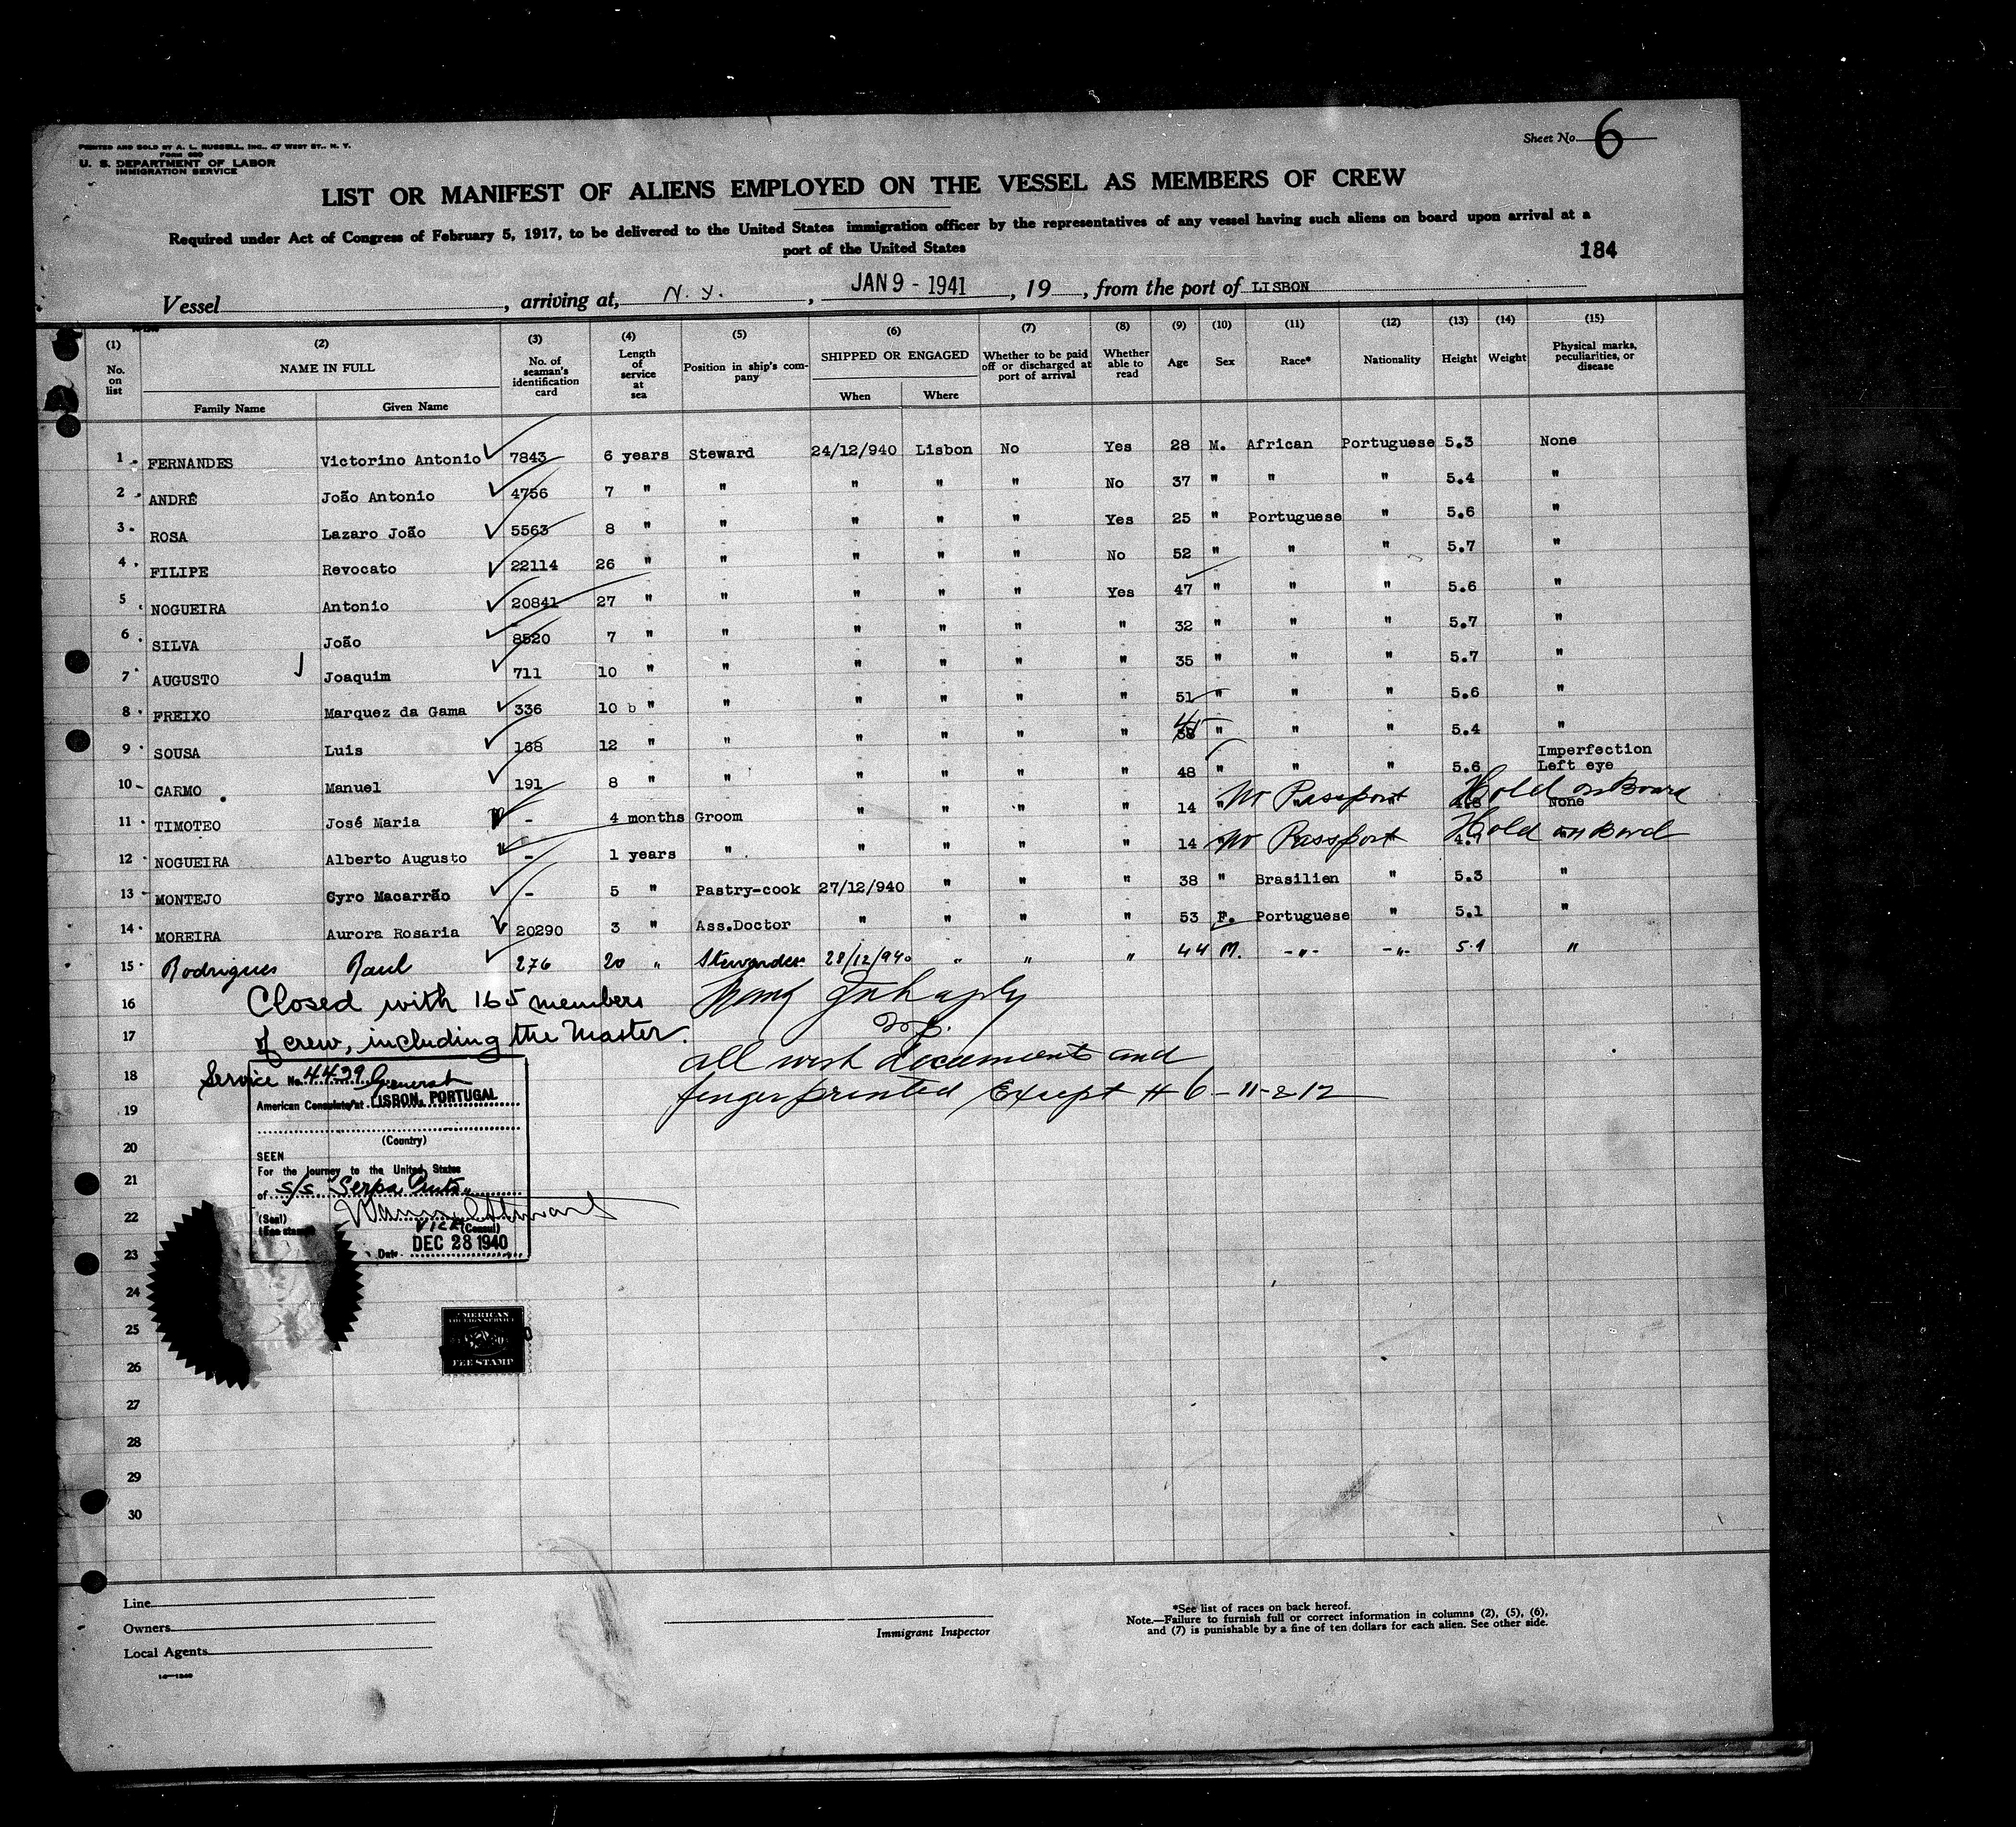 PRINTED AND SOLD BY A. L. RUSSELL, INC., 47 WEST ST., N. Y.
Form 680
U. S. DEPARTMENT OF LABOR
IMMIGRATION SERVICE
Sheet No. 6
LIST OR MANIFEST OF ALIENS EMPLOYED ON THE VESSEL AS MEMBERS OF CREW
Required under Act of Congress of February 5, 1917, to be delivered to the United States immigration officer by the representatives of any vessel having such aliens on board upon arrival at a
port of the United States
184
Vessel , arriving at, N. Y. , JAN 9 - 1941 , 19 , from the port of LISBON
(1) No. on list (2) NAME IN FULL Family Name Given Name (3) No. of seaman's identification card (4) Length of service at sea (5) Position in ship's company (6) SHIPPED OR ENGAGED When Where (7) Whether to be paid off or discharged at port of arrival (8) Whether able to read (9) Age (10) Sex (11) Race* (12) Nationality (13) Height (14) Weight (15) Physical marks, peculiarities, or disease
1 FERNANDES Victorino Antonio 7843 6 years Steward 24/12/940 Lisbon No Yes 28 M. African Portuguese 5.3 None
2 ANDRÊ João Antonio 4756 7 " " " " " No 37 " " " 5.4 "
3 ROSA Lazaro João 5563 8 " " " " " Yes 25 " Portuguese " 5.6 "
4 FILIPE Revocato 22114 26 " " " " " No 52 " " " 5.7 "
5 NOGUEIRA Antonio 20841 27 " " " " " Yes 47 " " " 5.6 "
6 SILVA João 8520 7 " " " " " " 32 " " " 5.7 "
7 AUGUSTO Joaquim 711 10 " " " " " " 35 " " " 5.7 "
8 FREIXO Marquez da Gama 336 10 b " " " " " " 51 " " " 5.6 "
9 SOUSA Luis 168 12 " " " " " " 45 " " " 5.4 "
10 CARMO Manuel 191 8 " " " " " " 48 " " " 5.6 Imperfection Left eye
11 TIMOTEO José Maria - 4 months Groom " " " " 14 " No Passport Hold on Board None
12 NOGUEIRA Alberto Augusto - 1 years " " " " " 14 No Passport 4.7 Hold on Bord
13 MONTEJO Cyro Macarrão - 5 " Pastry-cook 27/12/940 " " " 38 " Brasilien " 5.3 "
14 MOREIRA Aurora Rosaria 20290 3 " Ass.Doctor " " " " 53 F. Portuguese " 5.1 "
15 Rodrigues Raul 276 20 " 28/12/940 " " " 44 M. -"- -"- 5.1 "
16 Closed with 165 members
17 of crew, including the Master.
all documents and
18 Service No. 4439 General
fingerprinted Except # 6 - 11 - & 12
19 American Consulate at LISBON, PORTUGAL
(Country)
20
SEEN
For the journey to the United States
21
of S/S "Serpa Pinto"
22
(Seal)
(Fee stamp)
VICE (Consul)
23
Date DEC 28 1940
24
25
AMERICAN
FOREIGN SERVICE
FEE STAMP
26
27
28
29
30
Line
Owners
Local Agents
Immigrant Inspector
*See list of races on back hereof.
Note.—Failure to furnish full or correct information in columns (2), (5), (6),
and (7) is punishable by a fine of ten dollars for each alien. See other side.